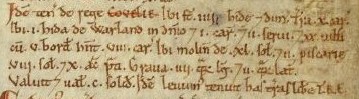 Isdē teñ de rege COVELIE. Ibi st̄. iiii. hidę 7 dim̄. Tr̄a. x. car̄.
Ibi. i. hida de Warland in dn̄io 7 i. car̄. 7 ii. serui. 7 xx. uill̄i
cū. v. bord̄ hn̄t. viii. car̄. Ibi molin̄ de. xl. sol̄. 7 ii. piscarię
viii. sol̄. 7 x. ac̄ p̄ti. Graua. iiii. qr̄ę lḡ. 7 ii. qr̄ę lat̄.
Valuit 7 ual̄. c. solid̄. Isdē Leuuin̄ tenuit